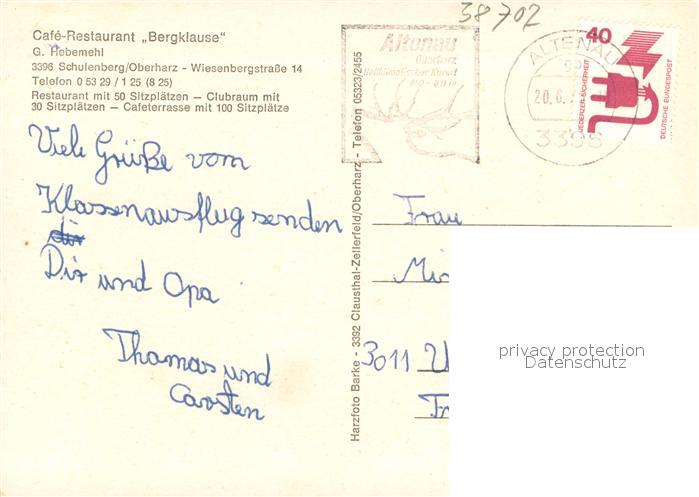 38702
Café-Restaurant „Bergklause"
G. Hebemehl
3396 Schulenberg/Oberharz - Wiesenbergstraße 14
Telefon 0 53 29 / 1 25 (8 25)
Restaurant mit 50 Sitzplätzen — Clubraum mit
30 Sitzplätzen — Cafeterrasse mit 100 Sitzplätze
Altenau
Oberharz
Heilklimatischer Kurort
ALTENAU
20.6.
3396
40
JEDERZEIT SICHERHEIT
DEUTSCHE BUNDESPOST
Viele Grüße vom
Klassenausflug senden
dir
Dir und Opa
Thomas und
Carsten
Harzfoto Barke - 3392 Clausthal-Zellerfeld/Oberharz - Telefon 05323/2455
Frau
3011
privacy protection
Datenschutz